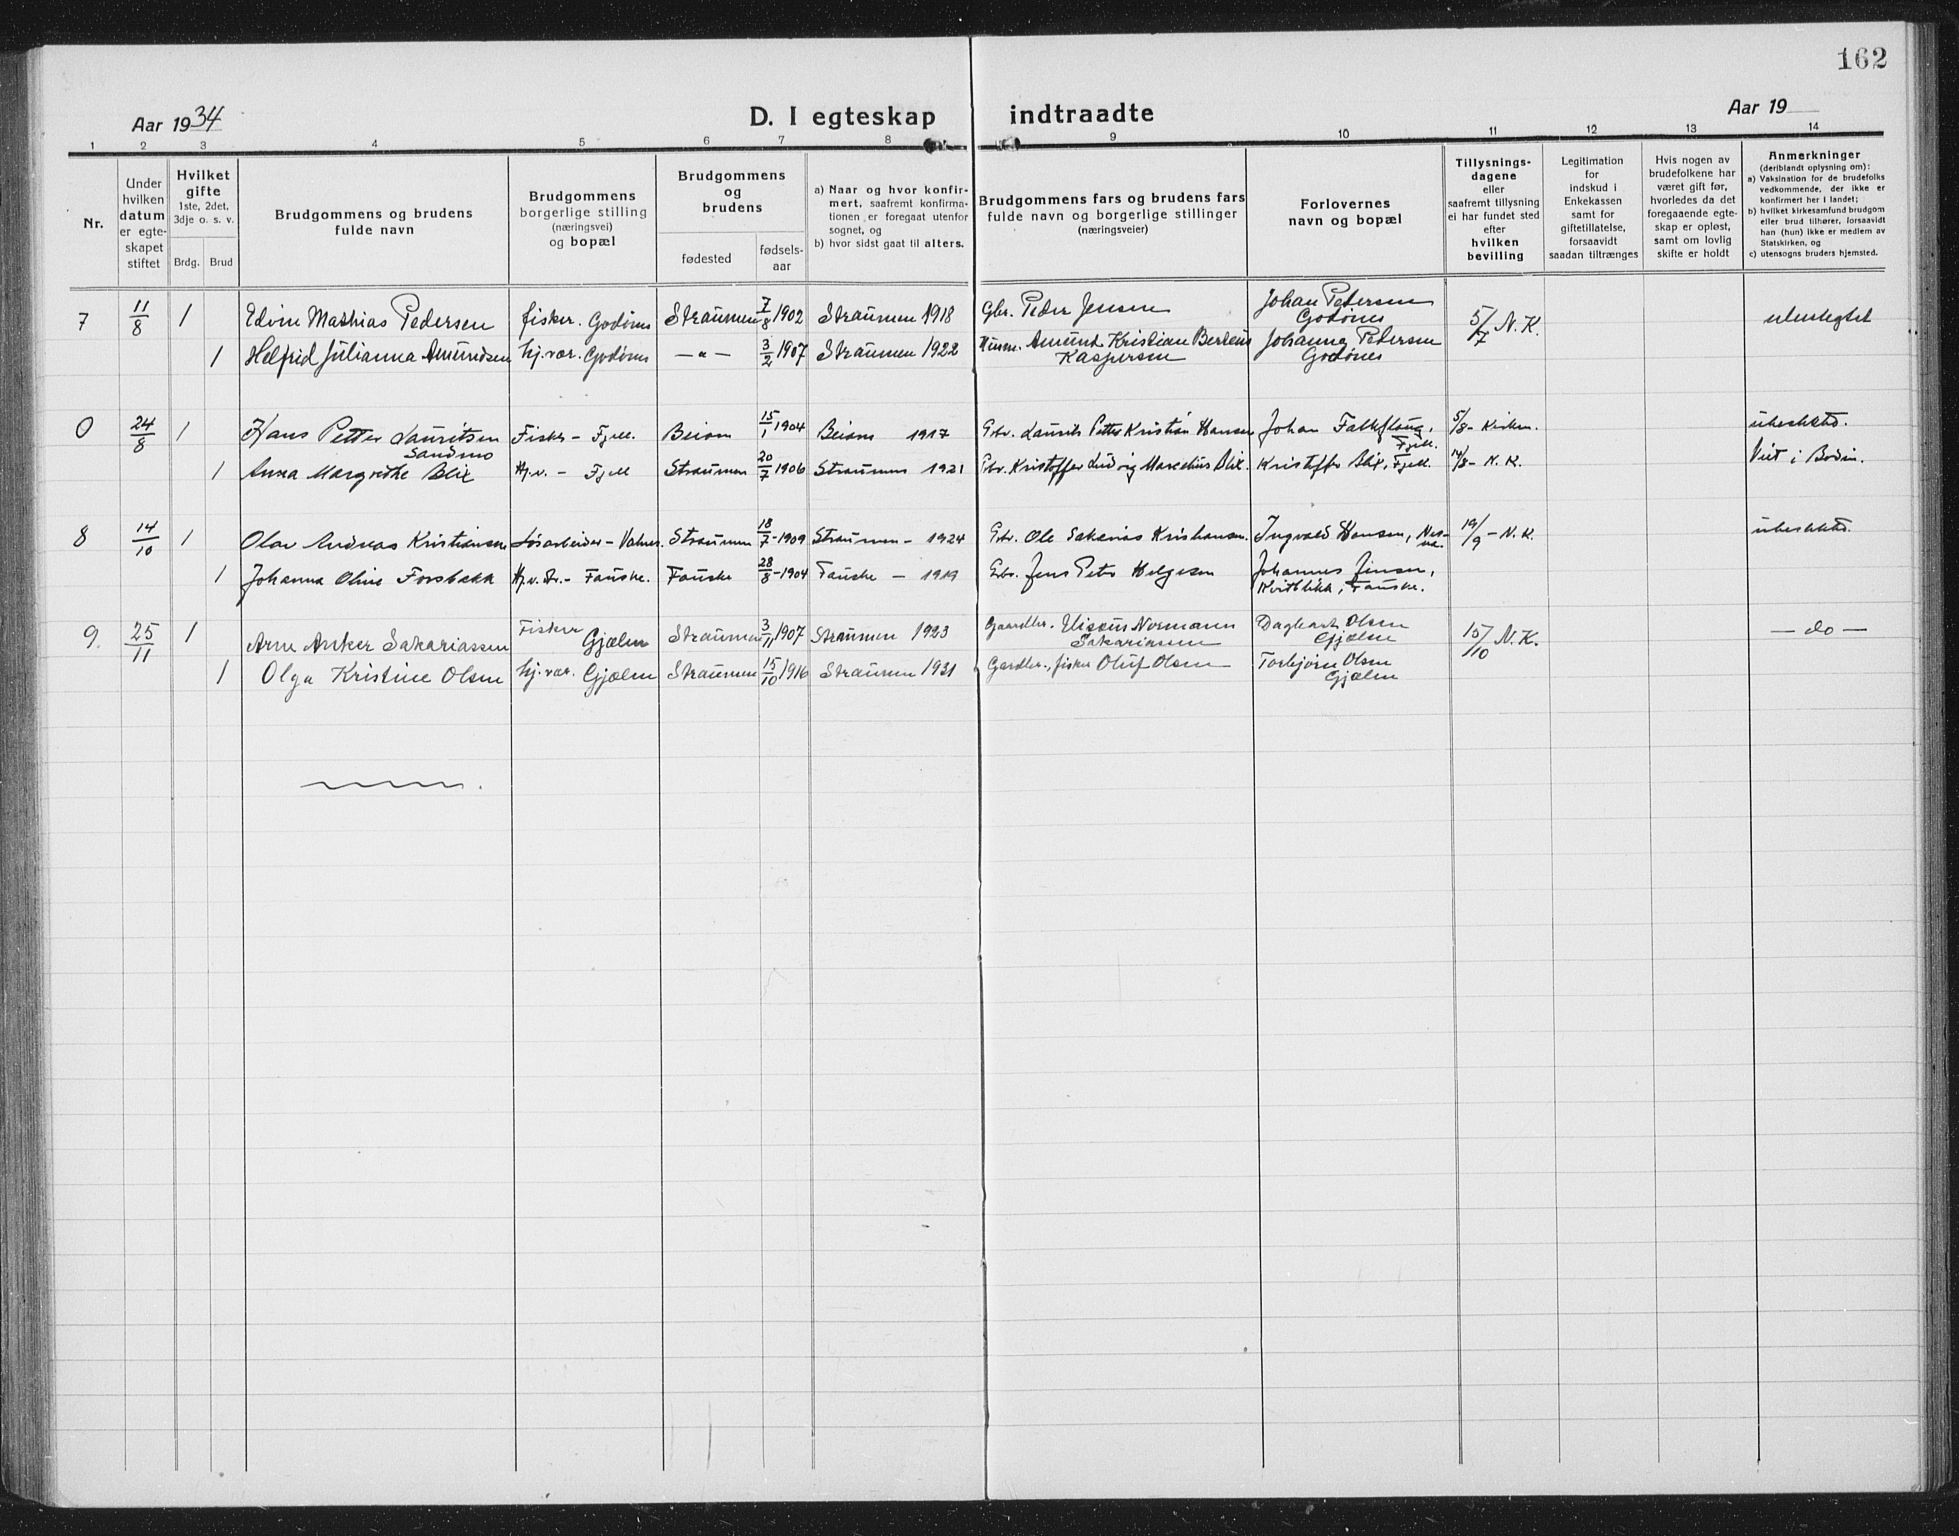 162
Aar 1934
D. I egteskap indtraadte
Aar 19
1 2 3 4 5 6 7 8 9 10 11 12 13 14
Nr.
Under hvilken datum er egteskapet stiftet
Hvilket gifte 1ste, 2det, 3dje o. s. v.
Brdg. Brud
Brudgommens og brudens fulde navn
Brudgommens borgerlige stilling (næringsvei) og bopæl
Brudgommens og brudens
fødested
fødselsaar
a) Naar og hvor konfirmert, saafremt konfirmationen er foregaat utenfor sognet, og
b) hvor sidst gaat til alters.
Brudgommens fars og brudens fars fulde navn og borgerlige stillinger (næringsveier)
Forlovernes navn og bopæl
Tillysningsdagene eller saafremt tillysning ei har fundet sted efter hvilken bevilling
Legitimation for indskud i Enkekassen samt for giftetillatelse, forsaavidt saadan tiltrænges
Hvis nogen av brudefolkene har været gift før, hvorledes da det foregaaende egteskap er opløst, samt om lovlig skifte er holdt
Anmerkninger (deriblandt oplysning om):
a) Vaksination for de brudefolks vedkommende, der ikke er konfirmert her i landet;
b) hvilket kirkesamfund brudgom eller brud tilhører, forsaavidt han (hun) ikke er medlem av Statskirken, og
c) utensogns bruders hjemsted.
7 11/8 1 Edvin Mathias Pedersen fisker. Godønes Straumen 7/8 1902 Straumen 1918 Gbr. Peder Jensen Johan Pedersen Godønes 5/7 N. K. ulentegtet
1 Helfrid Julianna Amundsen hj.vær. Godønes — " — 3/2 1907 Straumen 1922 Amund Kristian Berteus Kaspersen Johanna Pedersen Godønes
0 24/8 1 Hans Petter Lauritsen Sandmo Fisker - Fjell. Beiarn 15/1 1904 Beiarn 1917 Gbr. Laurits Petter Kristian Hansen Johan Falkflaug, Fjell. 5/8 - Kirken. ubeslektd.
1 Anna Margrethe Blix Hj.v. - Fjell Straumen 20/7 1906 Straumen 1921 Gbr. Kristoffer Ludvig Marselius Blix. Kristoffer Blix, Fjell. 14/8 - N. K. Viet i Bodin.
8 14/10 1 Olav Andreas Kristiansen Løsarbeider - Straumen 18/7 - 1909 Straumen - 1924 Gbr. Ole Sakarias Kristiansen. Ingvald Hansen, 19/9 - N. K. ubeslektd.
1 Johanna Oline Forsbakk Hj.v. - Fauske. Fauske 28/8 - 1904 Fauske - 1919 Gbr. Jens Peter Helgesen Johannes Jensen, Kvitblikk, Fauske.
9. 25/11 1 Arne Anker Sakariassen Fisker Gjælen Straumen 3/11 1907 Straumen 1923 Gaardbr. Elisæus Normann Sakariassen Dagbart Olsen Gjælen 15/10 N. K. — do —
1 Olga Kristine Olsen hj.vær. Gjælen Straumen 15/10 1916 Straumen 1931 Gardbr., fisker Oluf Olsen Torbjørn Olsen Gjælen